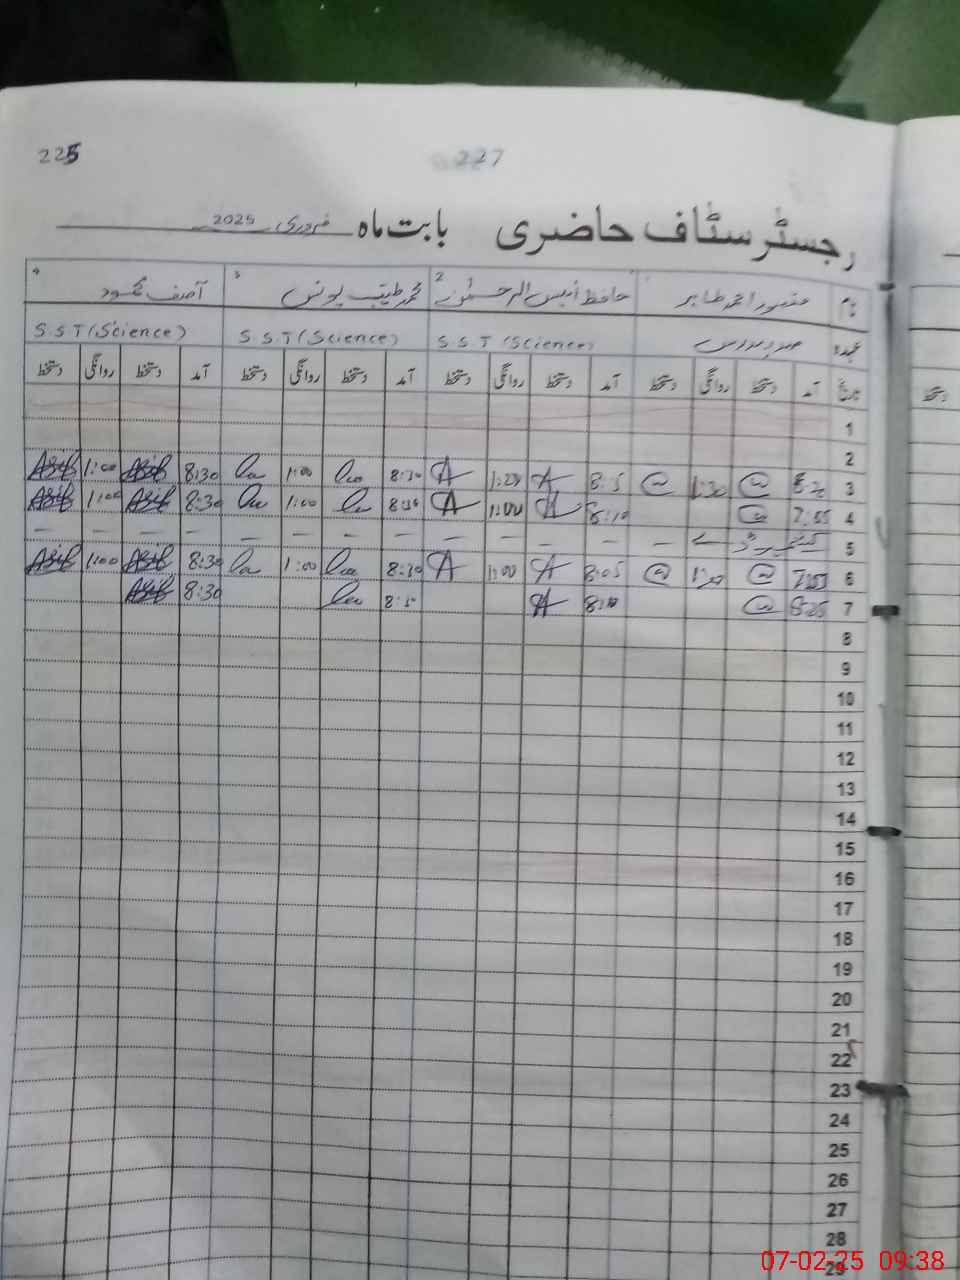 225
227
رجسٹر سٹاف حاضری بابت ماہ فروری 2025
نام منصور احمد طاہر 2 حافظ انیس الرحمٰن 3 محمد طیب یونس 4 آصف محمود
عہدہ صدر مدرس S.S.T (Science) S.S.T (Science) S.S.T (Science)
تاریخ آمد دستخط روانگی دستخط آمد دستخط روانگی دستخط آمد دستخط روانگی دستخط آمد دستخط روانگی دستخط
دستخط
1
2
3 1:30 8:30 1:00 8:30 Asif 1:00 Asif
4 7:55 8:10 1:00 8:30 1:00 8:30 Asif 1:00 Asif
5 — — — — — — — — — — —
6 7:55 8:05 1:00 8:30 1:00 8:30 Asif 1:00 Asif
7 8:25 8:10 8:30 Asif
8
9
10
11
12
13
14
15
16
17
18
19
20
21
22
23
24
25
26
27
28
29
07-02-25 09:38